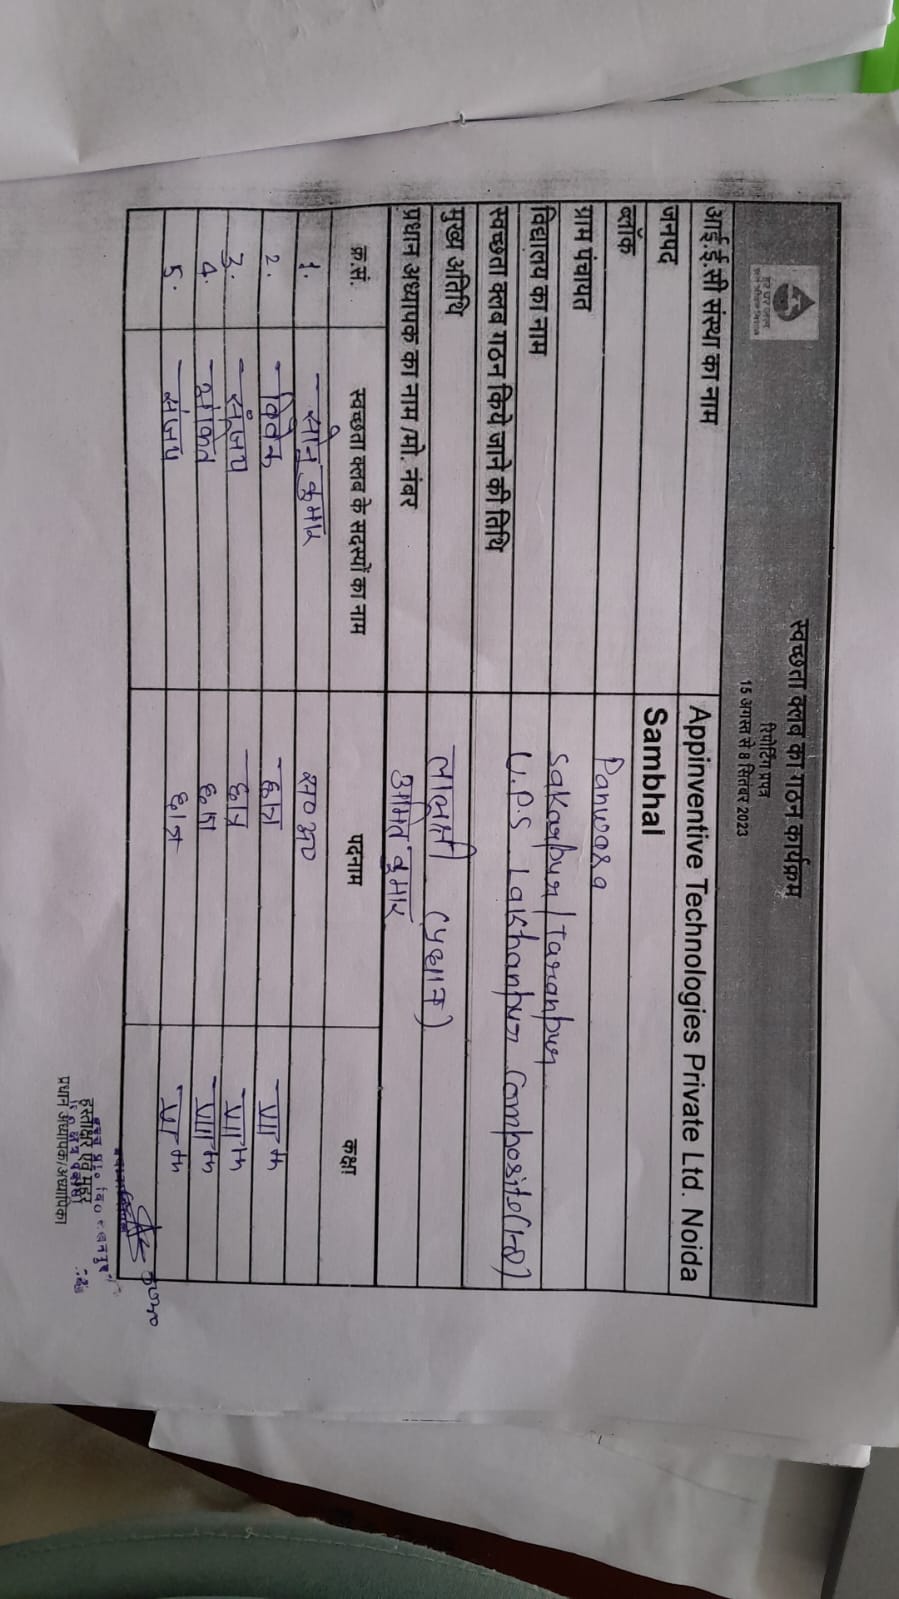 स्वच्छता क्लब का गठन कार्यक्रम
रिपोर्टिंग प्रपत्र
15 अगस्त से 8 सितंबर 2023
आई.ई.सी संस्था का नाम Appinventive Technologies Private Ltd. Noida
जनपद Sambhal
ब्लॉक Panwasa
ग्राम पंचायत Sakarpur/Taranpur
विद्यालय का नाम U.P.S. Lakhanpur Composite (1-8)
स्वच्छता क्लब गठन किये जाने की तिथि
मुख्य अतिथि लालमी (प्रधान)
प्रधान अध्यापक का नाम/मो. नंबर अमित कुमार
क्र.सं. स्वच्छता क्लब के सदस्यों का नाम पदनाम कक्षा
1. सोनू कुमार स०अ०
2. छात्र VII th
3. संजय छात्र VII th
4. अंकित छात्र VIII th
5. संजय छात्र VI th
हस्ताक्षर एवं मुहर
प्रधान अध्यापक/अध्यापिका